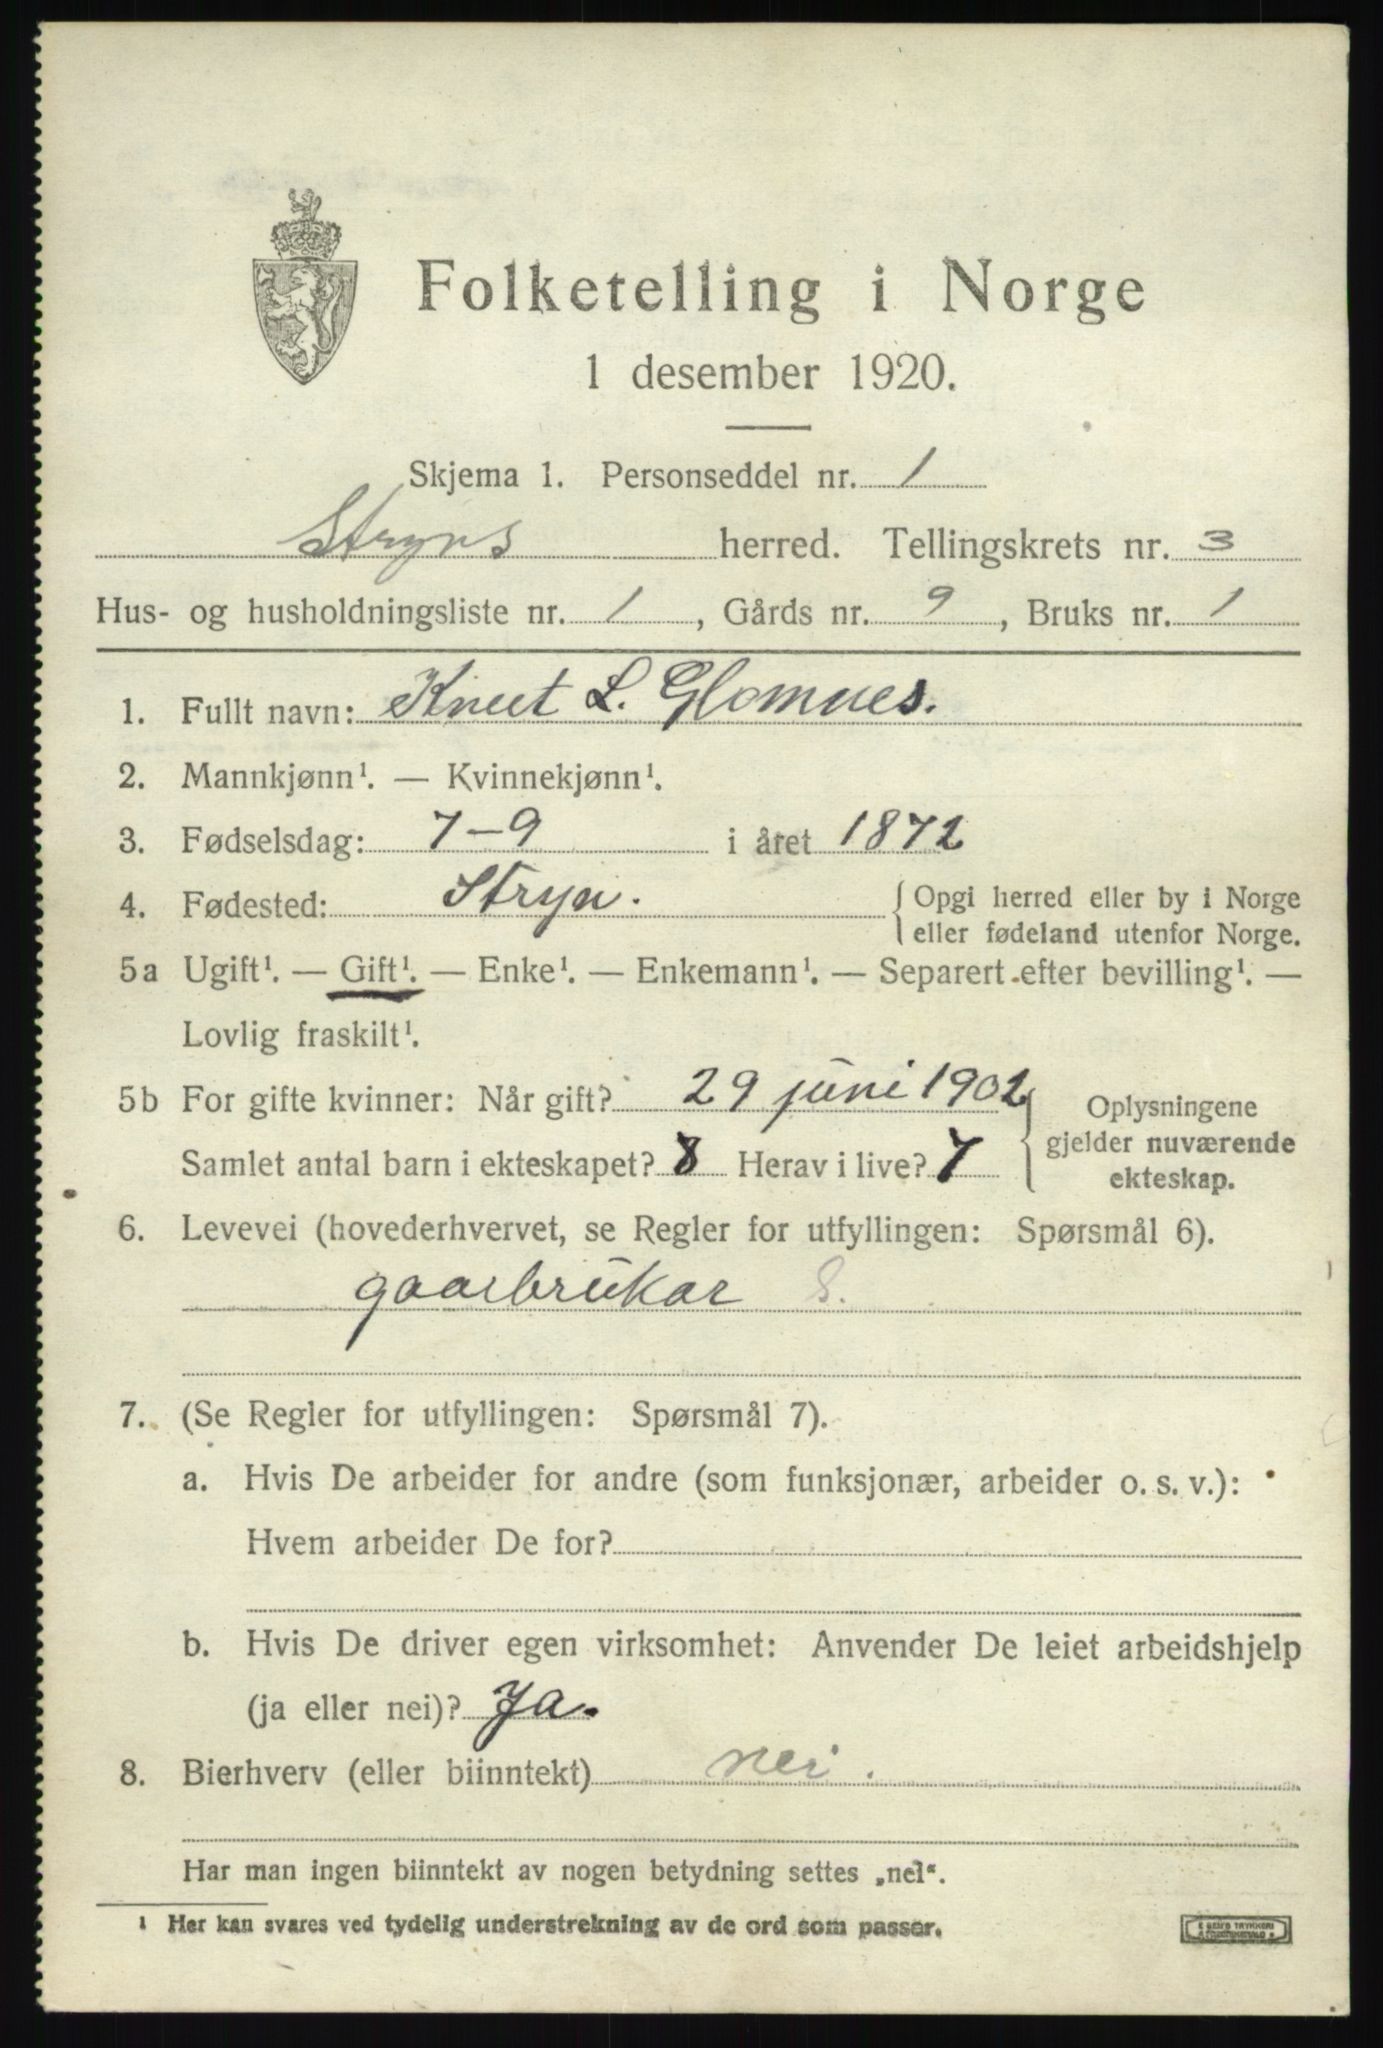 Folketelling i Norge
1 desember 1920.
Skjema 1. Personseddel nr. 1
Stryns herred. Tellingskrets nr. 3
Hus- og husholdningsliste nr. 1, Gårds nr. 9, Bruks nr. 1
1. Fullt navn: Knut L. Glomnes.
2. Mannkjønn¹. — Kvinnekjønn¹.
3. Fødselsdag: 7-9 i året 1872
4. Fødested: Stryn. { Opgi herred eller by i Norge
eller fødeland utenfor Norge.
5a Ugift¹. — Gift¹. — Enke¹. — Enkemann¹. — Separert efter bevilling¹. —
Lovlig fraskilt¹.
5b For gifte kvinner: Når gift? 29 juni 1902
Samlet antal barn i ekteskapet? 8 Herav i live? 7
Oplysningene
gjelder nuværende
ekteskap.
6. Levevei (hovederhvervet, se Regler for utfyllingen: Spørsmål 6).
gaarbrukar S.
7. (Se Regler for utfyllingen: Spørsmål 7).
a. Hvis De arbeider for andre (som funksjonær, arbeider o. s. v.):
Hvem arbeider De for?
b. Hvis De driver egen virksomhet: Anvender De leiet arbeidshjelp
(ja eller nei)? Ja.
8. Bierhverv (eller biinntekt) nei.
Har man ingen biinntekt av nogen betydning settes „nei“.
¹ Her kan svares ved tydelig understrekning av de ord som passer.